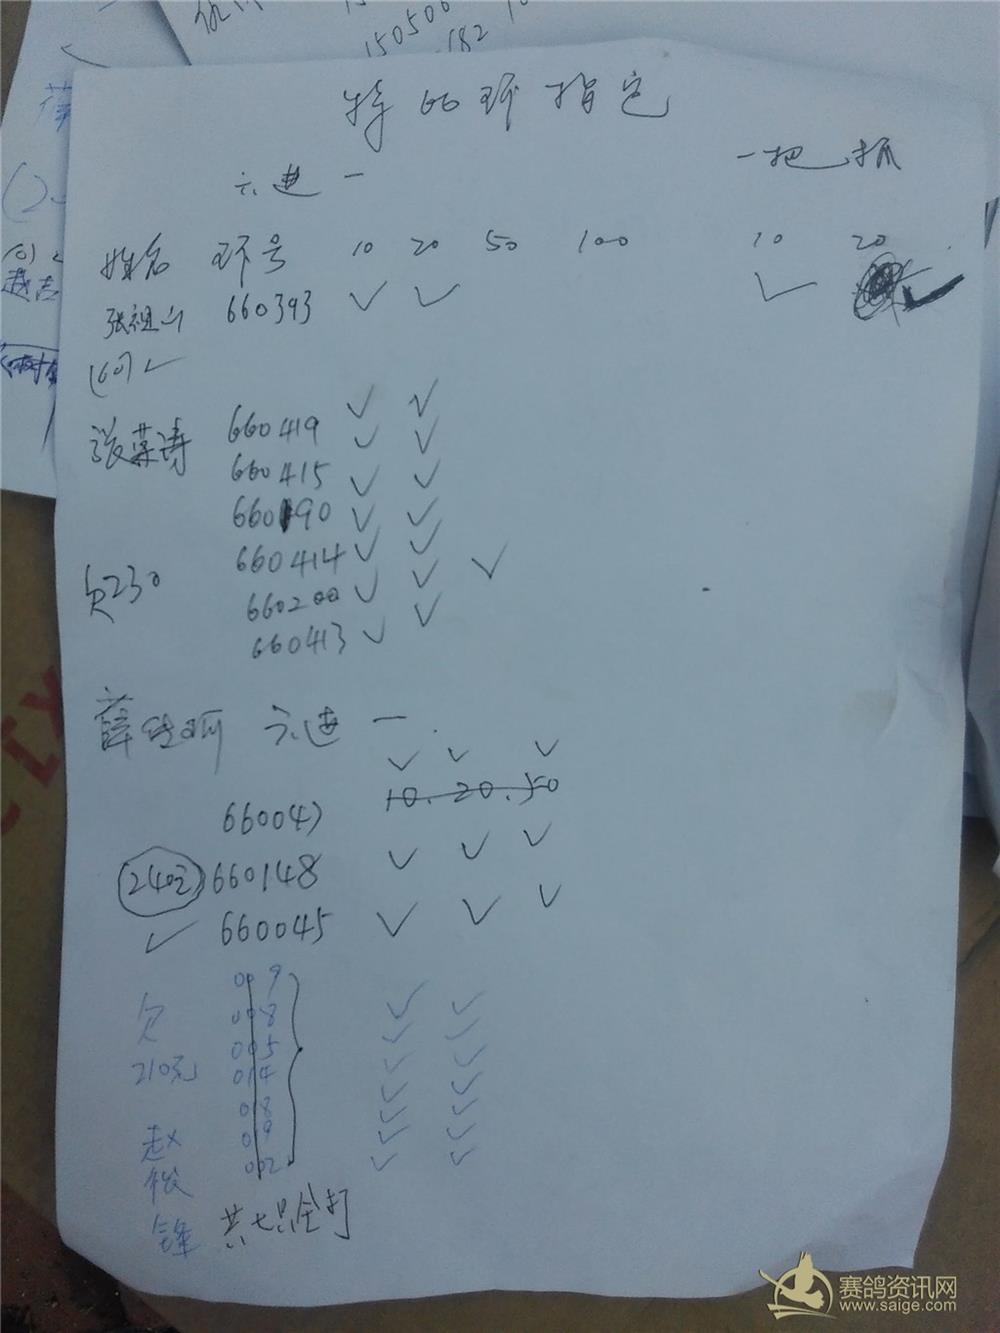 150500
182
特比环指定
六进一 一把抓
姓名 环号 10 20 50 100 10 20
张祖 660393 ✓ ✓ ✓ ✓
(60) ✓
张荣涛 660419 ✓ ✓
660415 ✓ ✓
660190 ✓ ✓
660414 ✓ ✓
欠230 660200 ✓ ✓ ✓
660413 ✓ ✓
薛 六进一
✓ ✓ ✓
660047 10. 20. 50
240元 660148 ✓ ✓ ✓
✓ 660045 ✓ ✓ ✓
009
欠 008 ✓ ✓
005 ✓ ✓
210元 014 ✓ ✓
018 ✓ ✓
赵 019 ✓ ✓
002 ✓ ✓
锋 共七只全打
赛鸽资讯网
www.saige.com